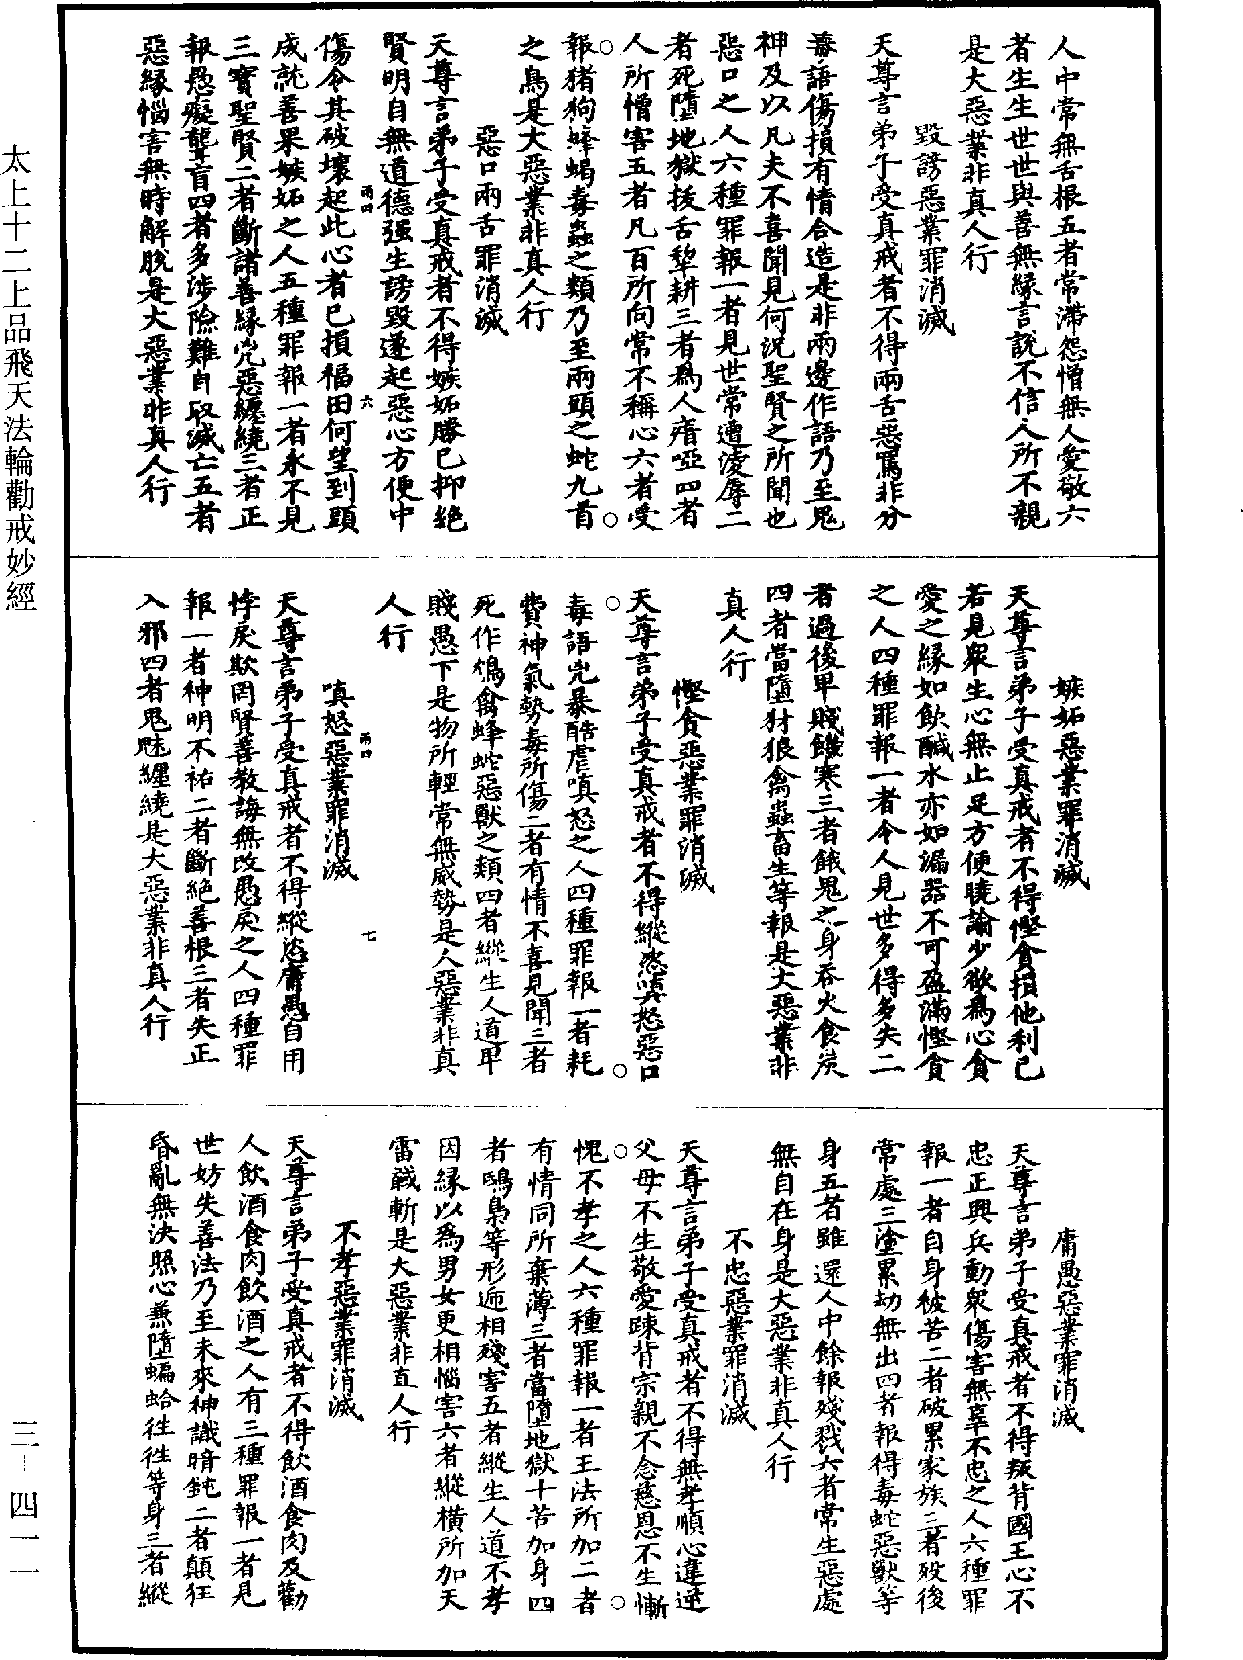 人中常無舌根五者常滯怨憎無人愛敬六
者生生世世與善無緣言說不信人所不親
是大惡業非真人行
毀謗惡業罪消滅
天尊言弟子受真戒者不得兩舌惡罵非分
毒語傷損有情合造是非兩邊作語乃至鬼
神及以凡夫不喜聞見何況聖賢之所聞也
惡口之人六種罪報一者見世常遭淩辱二
者死墮地獄拔舌犁耕三者為人瘖啞四者
人所憎害五者凡百所向常不稱心六者受
報猪狗蜂蝎毒蟲之類乃至兩頭之蛇九首
之鳥是大惡業非真人行
惡口兩舌罪消滅
天尊言弟子受真戒者不得嫉妬勝已抑絕
賢明自無道德强生謗毀遂起惡心方便中
傷令其破壞起此心者已損福田何望到頭
成就善果嫉妬之人五種罪報一者永不見
三寶聖賢二者斷諸善緣灾惡纏繞三者正
報愚癡聾盲四者多涉險難自取滅亡五者
惡緣惱害無時解脫是大惡業非真人行
嫉妬惡業罪消滅
天尊言弟子受真戒者不得慳貪損他利已
若見衆生心無止足方便曉諭少欲為心貪
愛之緣如飲鹹水亦如漏器不可盈滿慳貪
之人四種罪報一者令人見世多得多失二
者過後卑賤饑寒三者餓鬼之身吞火食炭
四者當墮豺狼禽蟲畜生等報是大惡業非
真人行
慳貪惡業罪消滅
天尊言弟子受真戒者不得縱恣嗔怒惡口
毒語兇暴酷虐嗔怒之人四種罪報一者耗
費神氣勢毒所傷二者有情不喜見聞三者
死作鴆禽蜂蛇惡獸之類四者縱生人道卑
賤愚下是物所輕常無威勢是人惡業非真
人行
嗔怒惡業罪消滅
天尊言弟子受真戒者不得縱恣庸愚自用
悖戾欺罔賢善教誨無改愚戾之人四種罪
報一者神明不祐二者斷絕善根三者失正
入邪四者鬼魅纏繞是大惡業非真人行
庸愚惡業罪消滅
天尊言弟子受真戒者不得叛背國王心不
忠正興兵動衆傷害無辜不忠之人六種罪
報一者自身被苦二者破累家族三者歿後
常處三塗累劫無出四者報得毒蛇惡獸等
身五者雖還人中餘報殘戮六者常生惡處
無自在身是大惡業非真人行
不忠惡業罪消滅
天尊言弟子受真戒者不得無孝順心違逆
父母不生敬愛踈背宗親不念慈恩不生慚
愧不孝之人六種罪報一者王法所加二者
有情同所棄薄三者當墮地獄十苦加身四
者鴟梟等形遞相殘害五者縱生人道不孝
因緣以為男女更相惱害六者縱橫所加天
雷戮斬是大惡業非真人行
不孝惡業罪消滅
天尊言弟子受真戒者不得飲酒食肉及勸
人飲酒食肉飲酒之人有三種罪報一者見
世妨失善法乃至未來神識暗鈍二者顛狂
昏亂無決照心兼墮蝙蛤徃徃等身三者縱
兩四
六
兩四
七
太上十二上品飛天法輪勸戒妙經
三—四一一